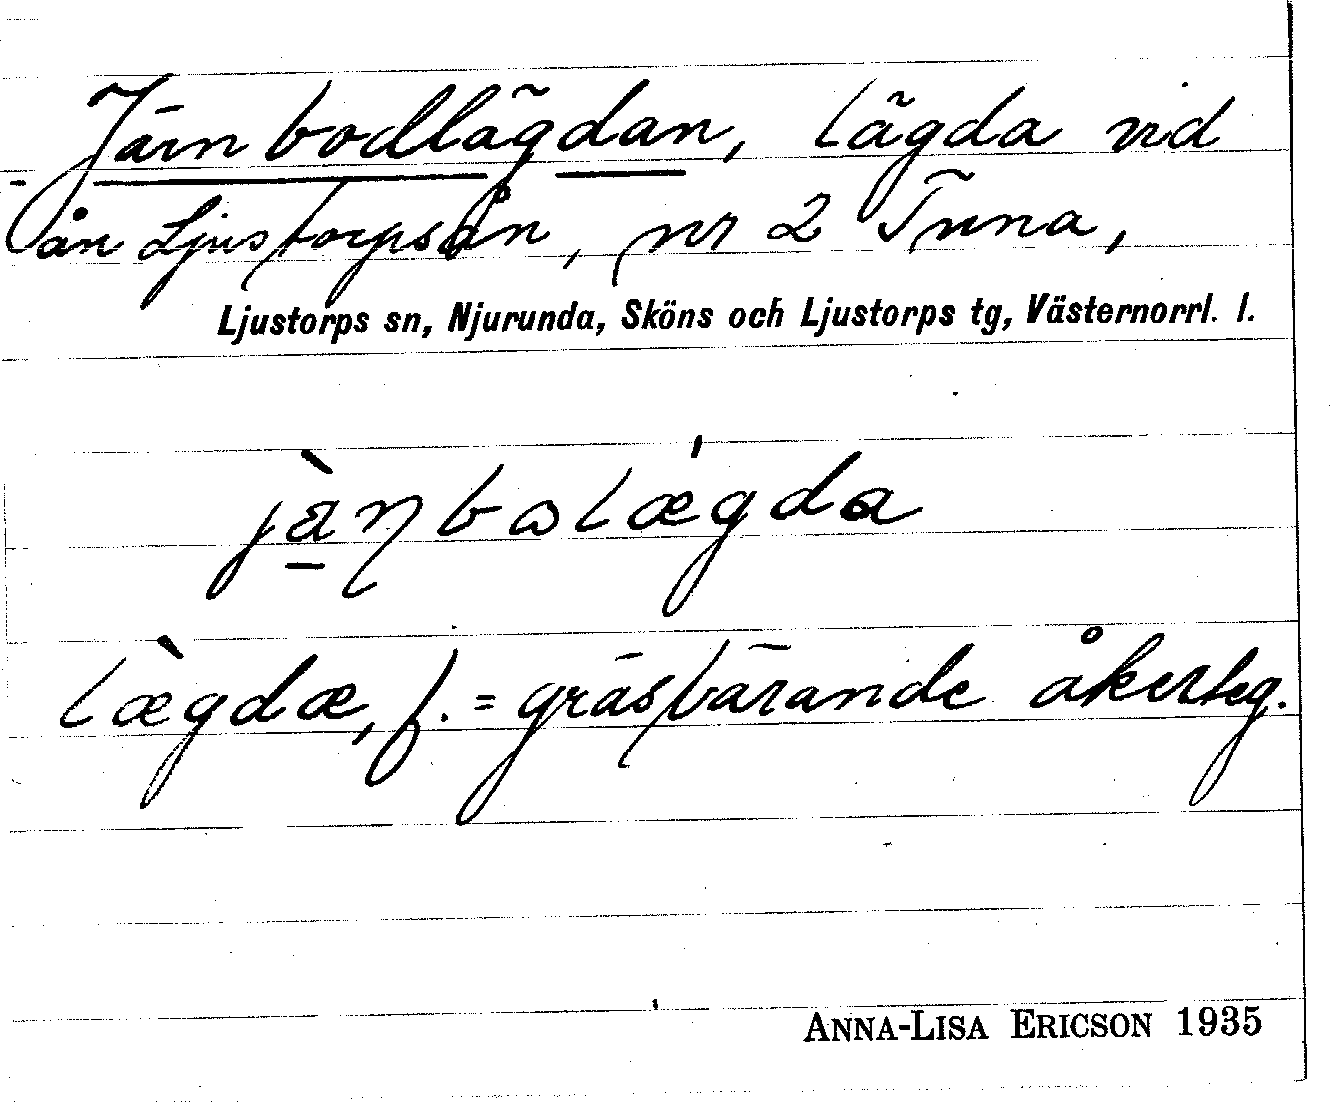 Järnbodlägdan, lägda vid
ån Ljustorpsån, nr 2 Tuna,
Ljustorps sn, Njurunda, Sköns och Ljustorps tg, Västernorrl. l.
jàŋbɷlǽgda
lægdæ̀, f. = gräsbärande åkerteg.
ANNA-LISA ERICSON 1935